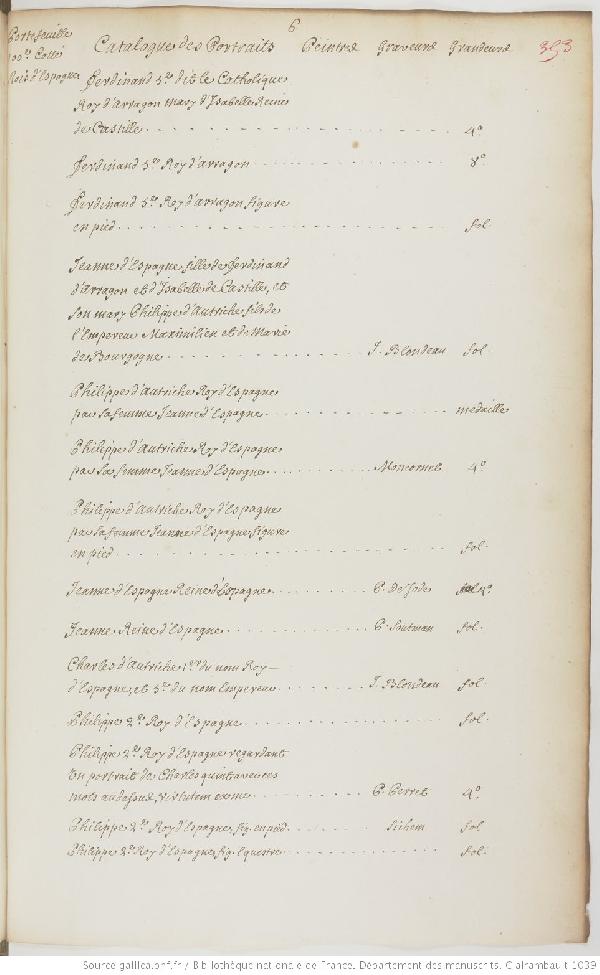 6
Portefeuille
Cotté
Rois d'Espagne
Catalogue des Portraits Peintre Graveurs Grandeurs 353
Ferdinand 5.e dit le Catholique
Roy d'arragon mary d'Isabelle Reine
de Castille 4.o
Ferdinand 5.e Roy d'arragon 8.o
Ferdinand 5.e Roy d'arragon figure
en pied fol.
Jeanne d'Espagne fille de Ferdinand
d'arragon et d'Isabelle de Castille, et
son mary Philippe d'Autriche fils de
l'Empereur Maximilien et de Marie
de Bourgogne J. Blondeau fol.
Philippe d'autriche Roy d'Espagne
par sa femme Jeanne d'Espagne medaille
Philippe d'autriche Roy d'Espagne
par sa femme Jeanne d'Espagne Moncornet 4.o
Philippe d'autriche Roy d'Espagne
par sa femme Jeanne d'Espagne figure
en pied fol.
Jeanne d'Espagne Reine d'Espagne P. De Jode
Jeanne Reine d'Espagne P. Soutman fol.
Charles d'Autriche 1.er du nom Roy
d'Espagne, et 5.e du nom Empereur J. Blondeau fol.
Philippe 2.e Roy d'Espagne fol.
Philippe 2.e Roy d'Espagne regardant
un portrait de Charles quint avec ces
mots au dessous, virtutem ex me P. Perret 4.o
Philippe 2.e Roy d'Espagne, fig. en pied Sichem fol.
Philippe 2.e Roy d'Espagne, fig. Equestre fol.
Source gallica.bnf.fr / Bibliothèque nationale de France. Département des manuscrits. Clairambault 1039